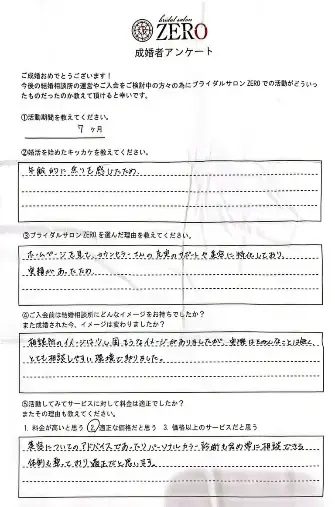 bridal salon
ZERO
成婚者アンケート
ご成婚おめでとうございます！
今後の結婚相談所の運営やご入会をご検討中の方々の為にブライダルサロンZEROでの活動がどういっ
たものだったのか教えて頂けると幸いです。
①活動期間を教えてください。
7 ヶ月
②婚活を始めたキッカケを教えてください。
年齢的に焦りを感じたため
③ブライダルサロンZEROを選んだ理由を教えてください。
ホームページを見て、カウンセラーさんの充実のサポートや美容に特化しており、
実績があったため
④ご入会前は結婚相談所にどんなイメージをお持ちでしたか？
また成婚された今、イメージは変わりましたか？
相談所のイメージは少し固そうなイメージがありましたが、実際はそのようなことは無く、
とても相談しやすい環境で助りました。
⑤活動してみてサービスに対して料金は適正でしたか？
またその理由も教えてください。
1. 料金が高いと思う 2. 適正な価格だと思う 3. 価格以上のサービスだと思う
美容についてのアドバイスであったりパーソナルカラー診断も含め常に相談できる
体制も整っており適正だと思います。